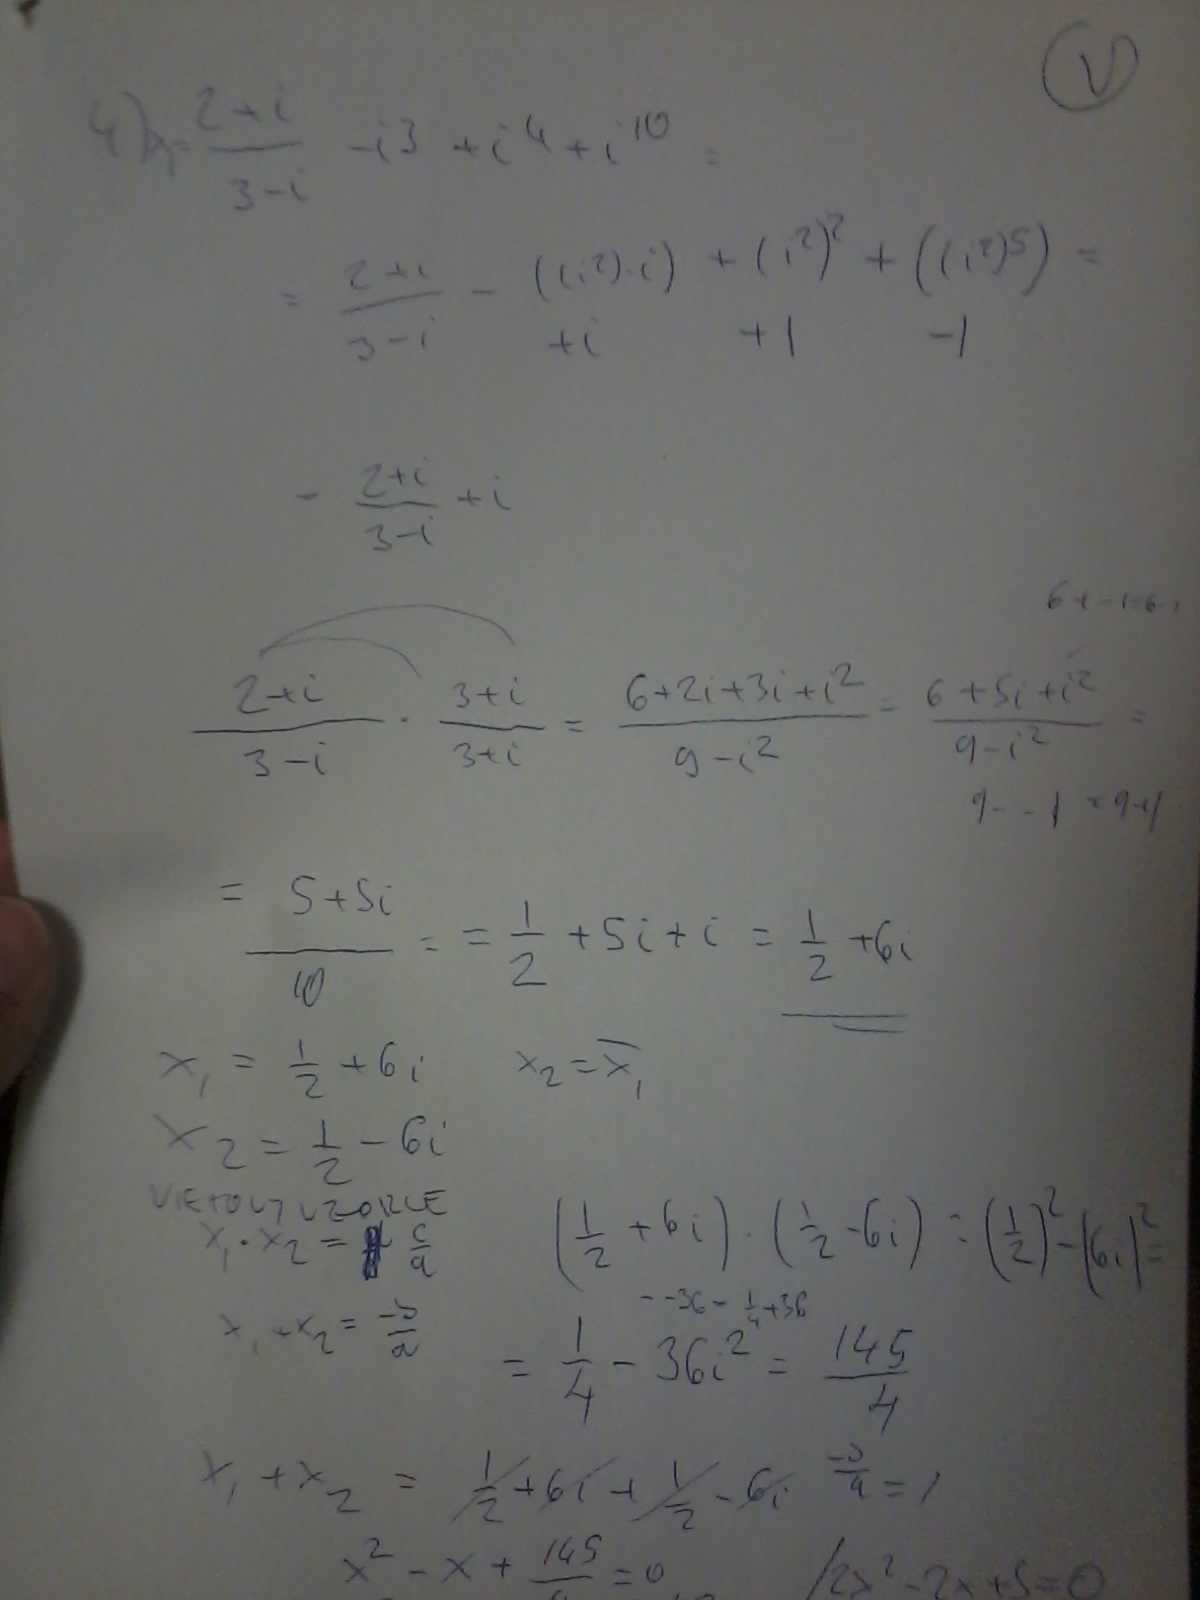 V
4) x₁ = (2+i)/(3-i) - i³ + i⁴ + i¹⁰ =
= (2+i)/(3-i) - ((i²)·i) + (i²)² + ((i²)⁵) =
+i +1 -1
- (2+i)/(3-i) + i
(2+i)/(3-i) · (3+i)/(3+i) = (6+2i+3i+i²)/(9-i²) = (6+5i+i²)/(9-i²) =
9--1 = 9+1
= (5+5i)/10 = = 1/2 + 5i + i = 1/2 + 6i
x₁ = 1/2 + 6i x₂ = x̅₁
x₂ = 1/2 - 6i
x₁·x₂ = c/a (1/2 + 6i)·(1/2 - 6i) = (1/2)² - (6i)² =
x₁+x₂ = -b/a --36 = 1/4+36
= 1/4 - 36i² = 145/4
x₁ + x₂ = 1/2 + 6i + 1/2 - 6i -b/a = 1
x² - x + 145/4 = 0 2x² - 2x + 5 = 0